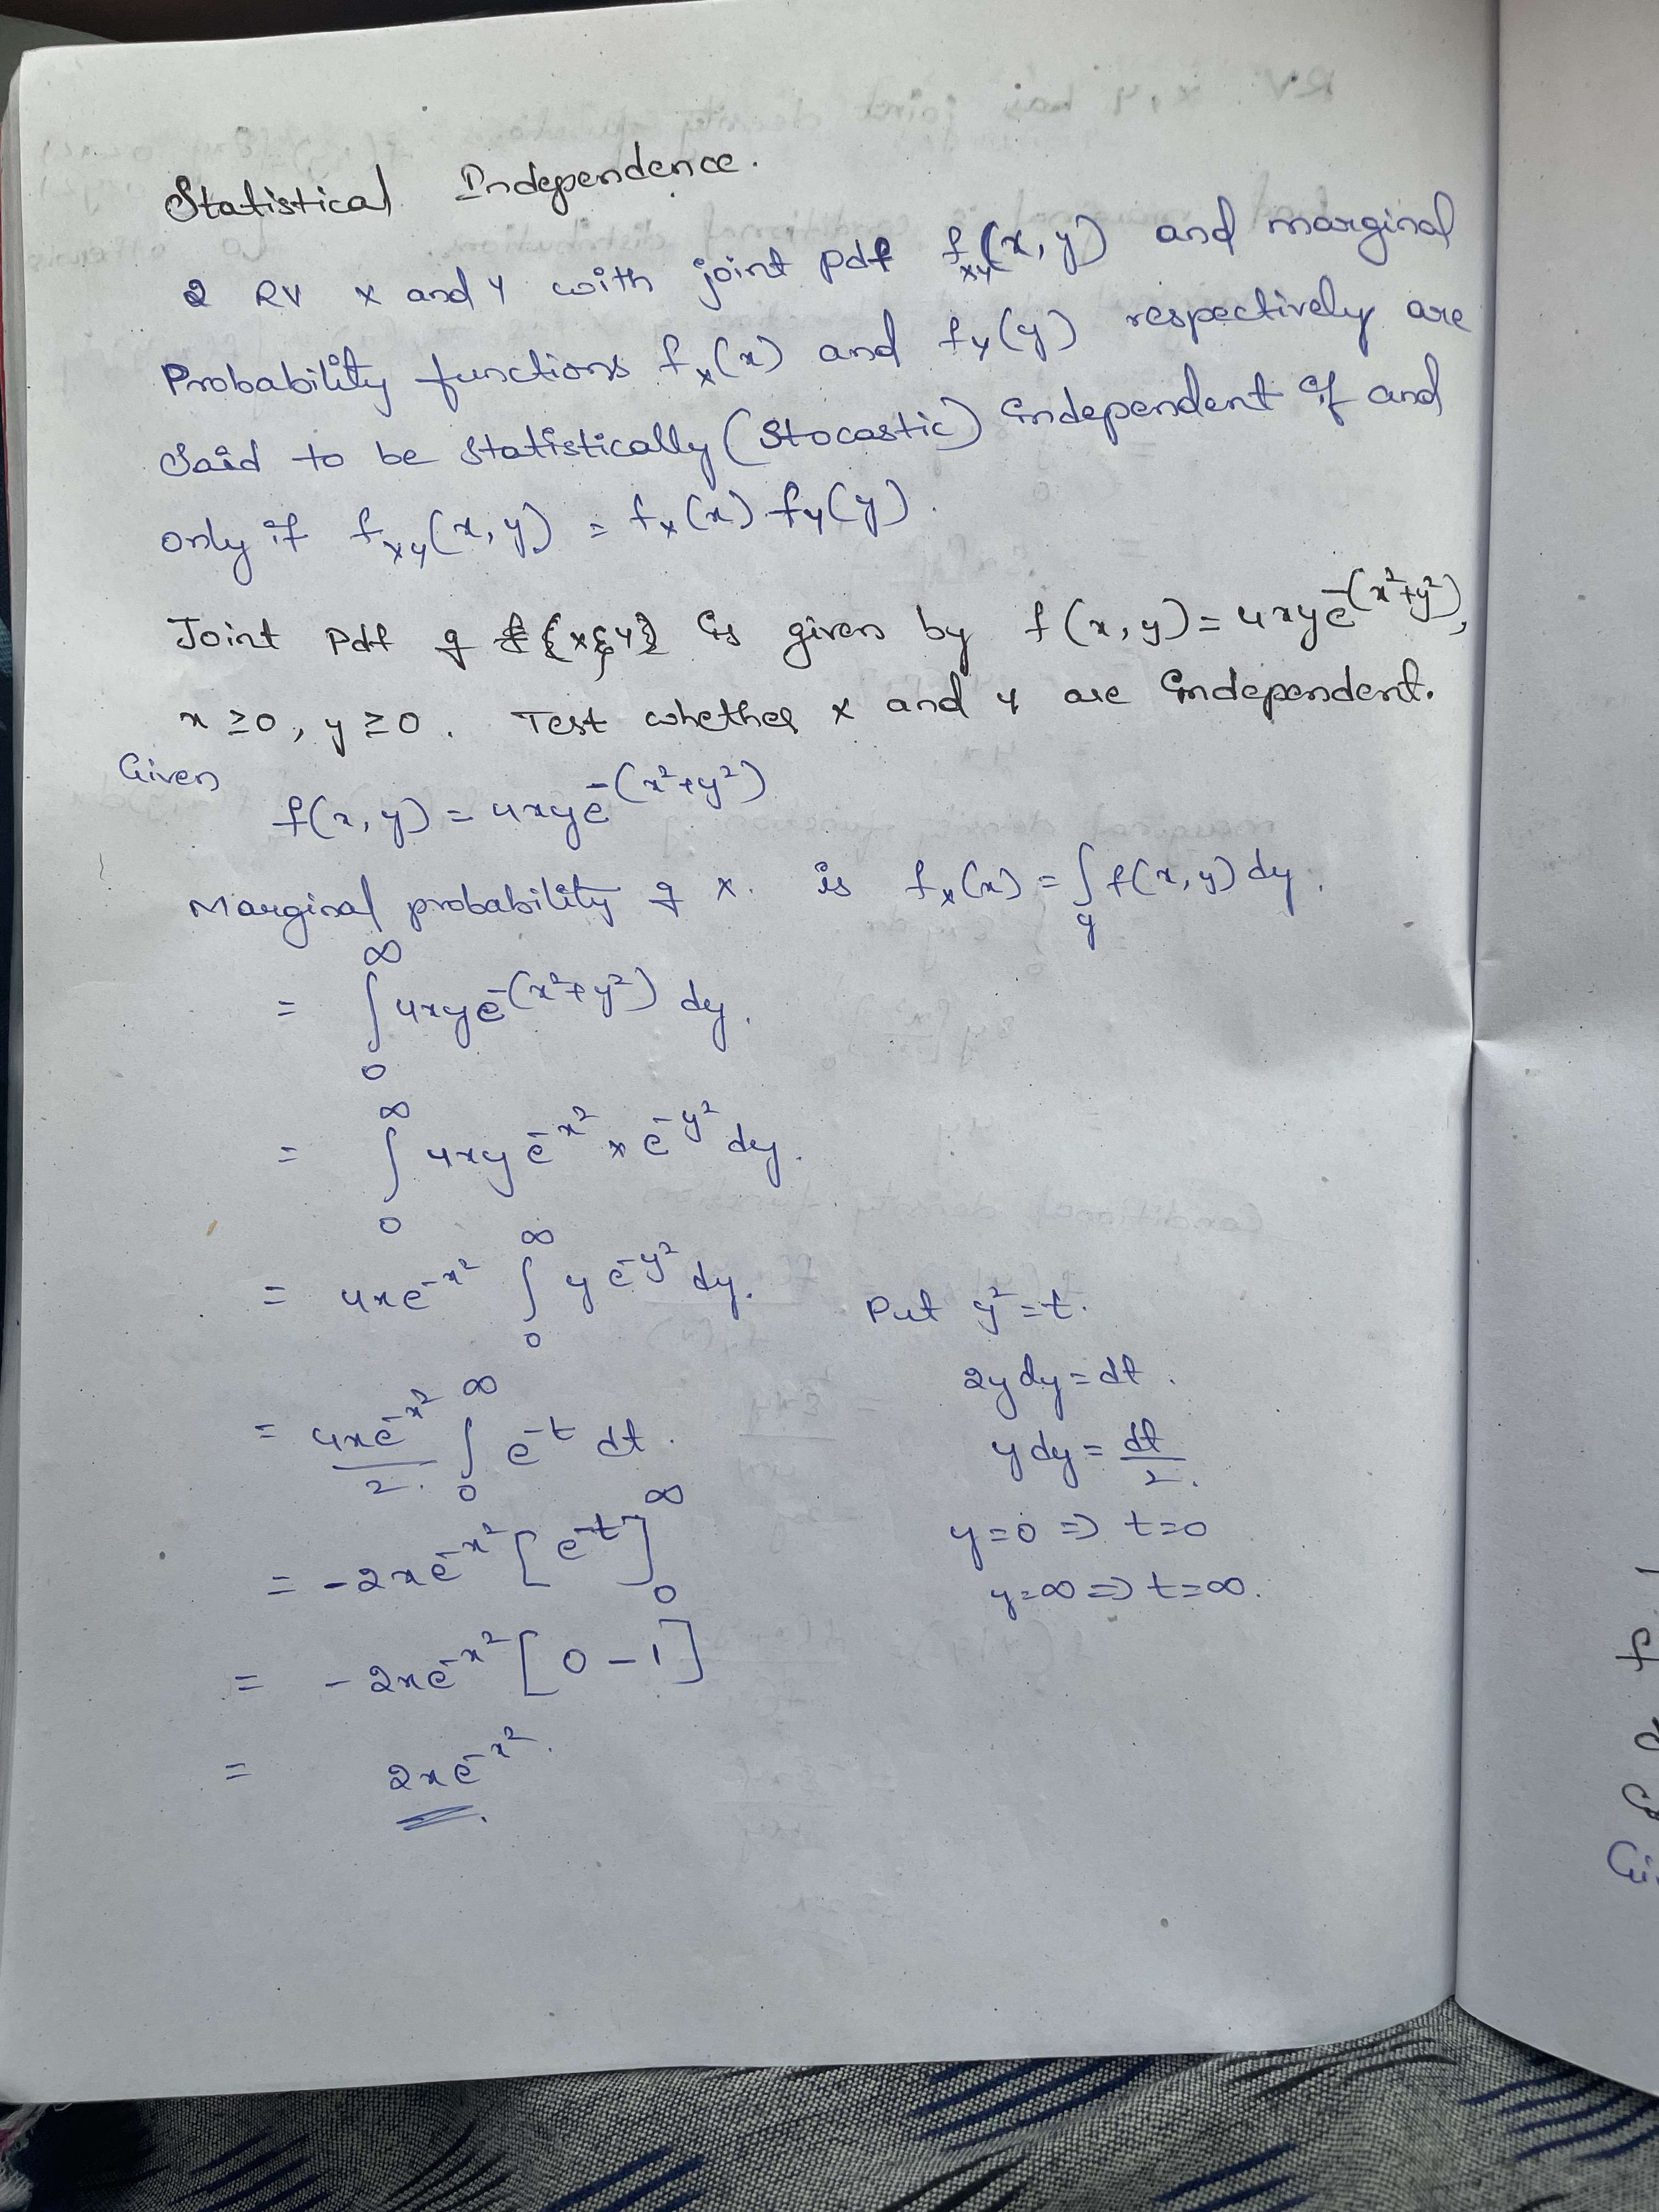 Statistical Independence.
2 RV X and Y with joint pdf f_XY(x, y) and marginal
Probability functions f_X(x) and f_Y(y) respectively are
Said to be statistically (Stocastic) independent if and
only if f_XY(x, y) = f_X(x) . f_Y(y).
Joint pdf of {X, Y} is given by f(x, y) = 4xye^-(x²+y²),
x ≥ 0, y ≥ 0. Test whether X and Y are independent.
Given
f(x, y) = 4xye^-(x²+y²)
Marginal probability of X. is f_X(x) = ∫_y f(x, y) dy.
= ∫_0^∞ 4xye^-(x²+y²) dy.
= ∫_0^∞ 4xye^-x² × e^-y² dy.
= 4xe^-x² ∫_0^∞ ye^-y² dy. Put y² = t.
2y dy = dt.
= 4xe^-x²/2. ∫_0^∞ e^-t dt. y dy = dt/2.
= -2xe^-x² [e^-t]_0^∞ y=0 ⇒ t=0
y=∞ ⇒ t=∞.
= -2xe^-x² [0 - 1]
= 2xe^-x².